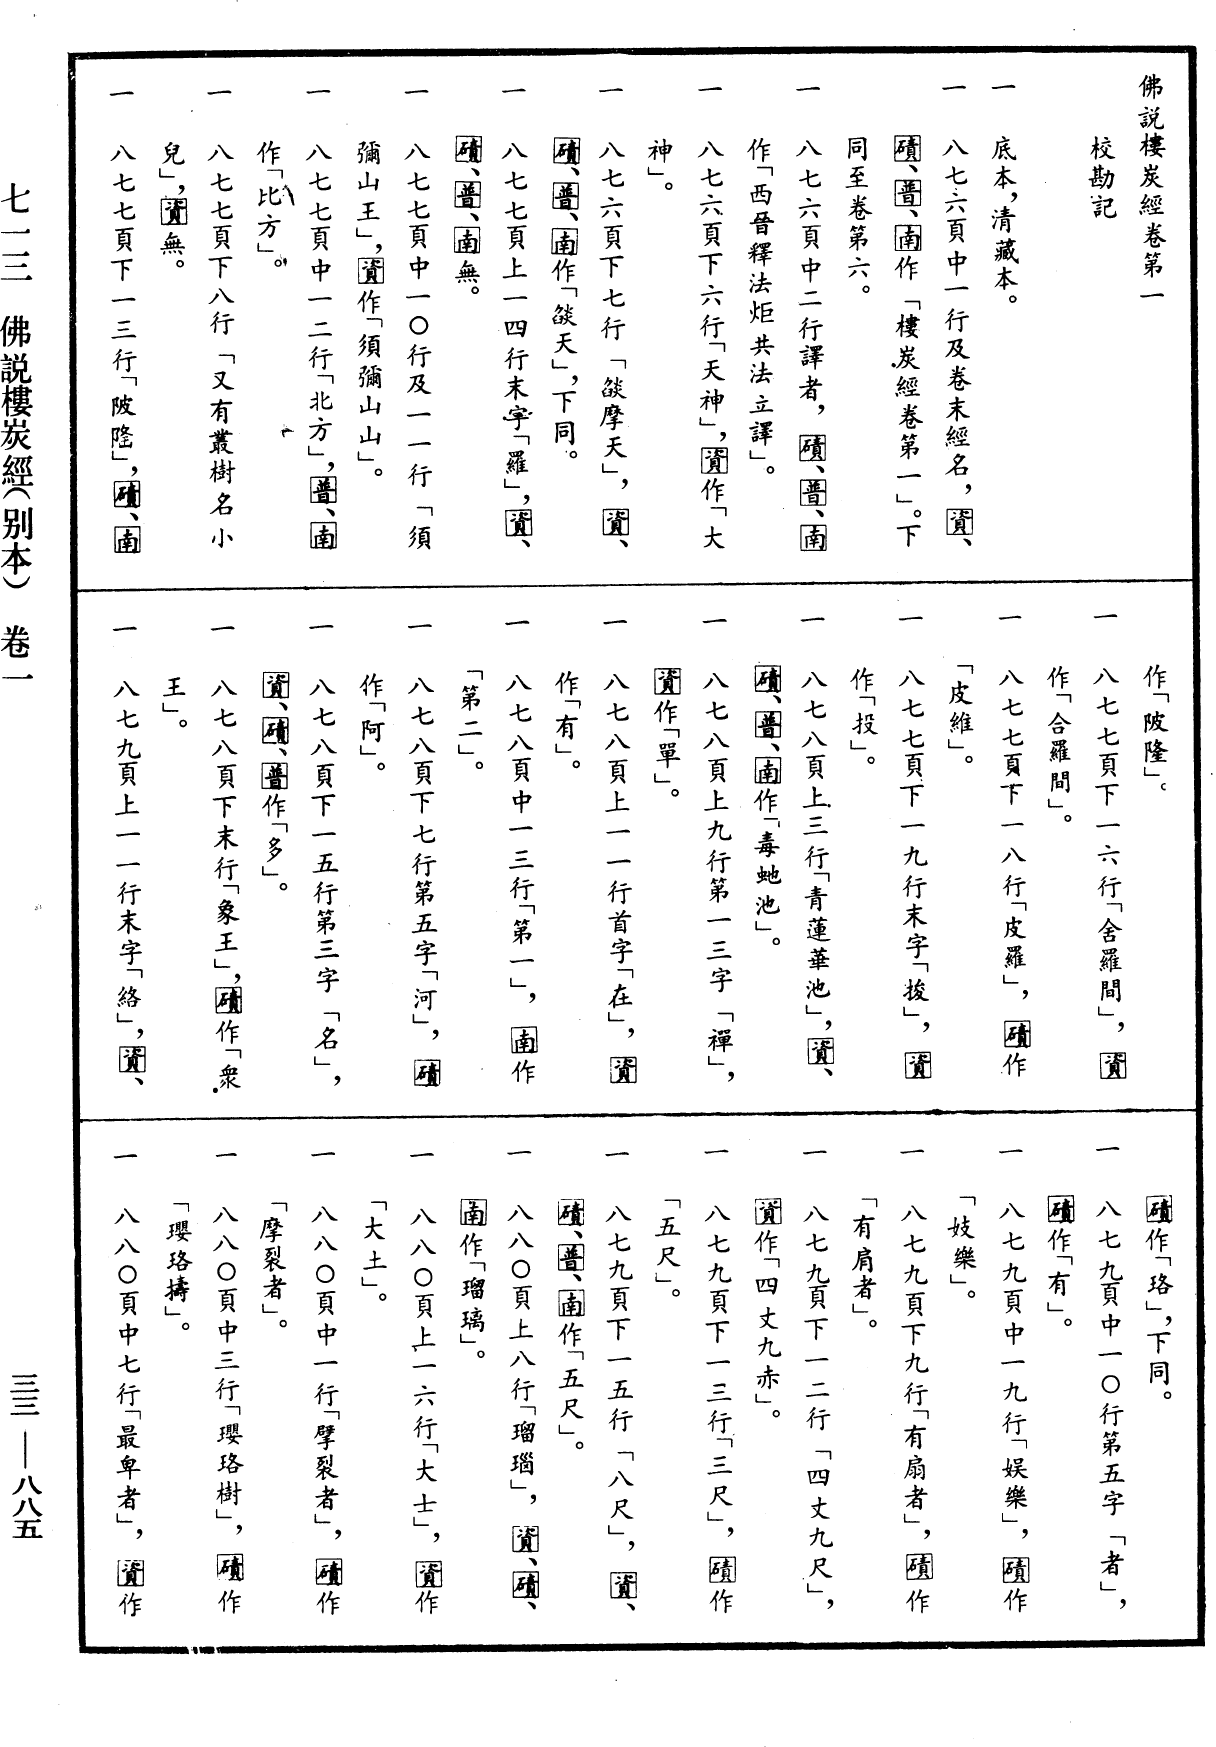 佛説樓炭經卷第一
校勘記
一　底本，清藏本。
一　八七六頁中一行及卷末經名，資、
磧、普、南作「樓炭經卷第一」。下
同至卷第六。
一　八七六頁中二行譯者，磧、普、南
作「西晉釋法炬共法立譯」。
一　八七六頁下六行「天神」，資作「大
神」。
一　八七六頁下七行「燄摩天」，資、
磧、普、南作「燄天」，下同。
一　八七七頁上一四行末字「羅」，資、
磧、普、南無。
一　八七七頁中一〇行及一一行「須
彌山王」，資作「須彌山山」。
一　八七七頁中一二行「北方」，普、南
作「比方」。
一　八七七頁下八行「又有叢樹名小
兒」，資無。
一　八七七頁下一三行「陂隆」，磧、南
作「陂隆」。
一　八七七頁下一六行「舍羅間」，資
作「合羅間」。
一　八七七頁下一八行「皮羅」，磧作
「皮維」。
一　八七七頁下一九行末字「捘」，資
作「投」。
一　八七八頁上三行「青蓮華池」，資、
磧、普、南作「毒虵池」。
一　八七八頁上九行第一三字「禪」，
資作「單」。
一　八七八頁上一一行首字「在」，資
作「有」。
一　八七八頁中一三行「第一」，南作
「第二」。
一　八七八頁下七行第五字「河」，磧
作「阿」。
一　八七八頁下一五行第三字「名」，
資、磧、普作「多」。
一　八七八頁下末行「象王」，磧作「衆
王」。
一　八七九頁上一一行末字「絡」，資、
磧作「珞」，下同。
一　八七九頁中一〇行第五字「者」，
磧作「有」。
一　八七九頁中一九行「娱樂」，磧作
「妓樂」。
一　八七九頁下九行「有扇者」，磧作
「有肩者」。
一　八七九頁下一二行「四丈九尺」，
資作「四丈九赤」。
一　八七九頁下一三行「三尺」，磧作
「五尺」。
一　八七九頁下一五行「八尺」，資、
磧、普、南作「五尺」。
一　八八〇頁上八行「瑠瑙」，資、磧、
南作「瑠璃」。
一　八八〇頁上一六行「大士」，資作
「大土」。
一　八八〇頁中一行「擘裂者」，磧作
「摩裂者」。
一　八八〇頁中三行「瓔珞樹」，磧作
「瓔珞擣」。
一　八八〇頁中七行「最卑者」，資作
七一三　佛説樓炭經（别本）　卷一
三三—八八五